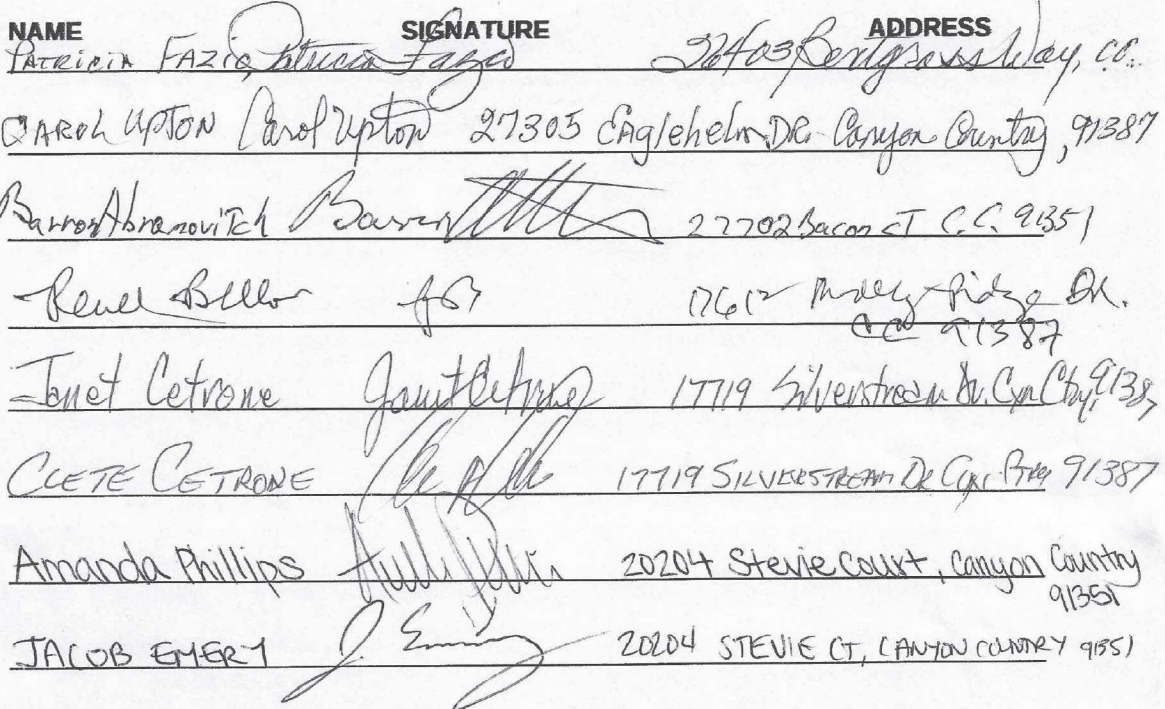 NAME SIGNATURE ADDRESS
PATRICIA FAZIO Patricia Fazio Way, CC.
CAROL UPTON Carol Upton 27305 Eaglehelm DR. Canyon Country, 91387
Barron Abramovitch Barron 27702 Bacon CT C.C. 91351
Bello 17612 Ridge DR.
CC 91387
Janet Cetrone Janet Cetrone 17719 Silverstream Dr. Cyn Cty, 91387
CLETE CETRONE 17719 SILVERSTREAM DR 91387
Amanda Phillips 20204 Stevie Court, Canyon Country
91351
JACOB EMERY J. Emery 20204 STEVIE CT, CANYON COUNTRY 91351